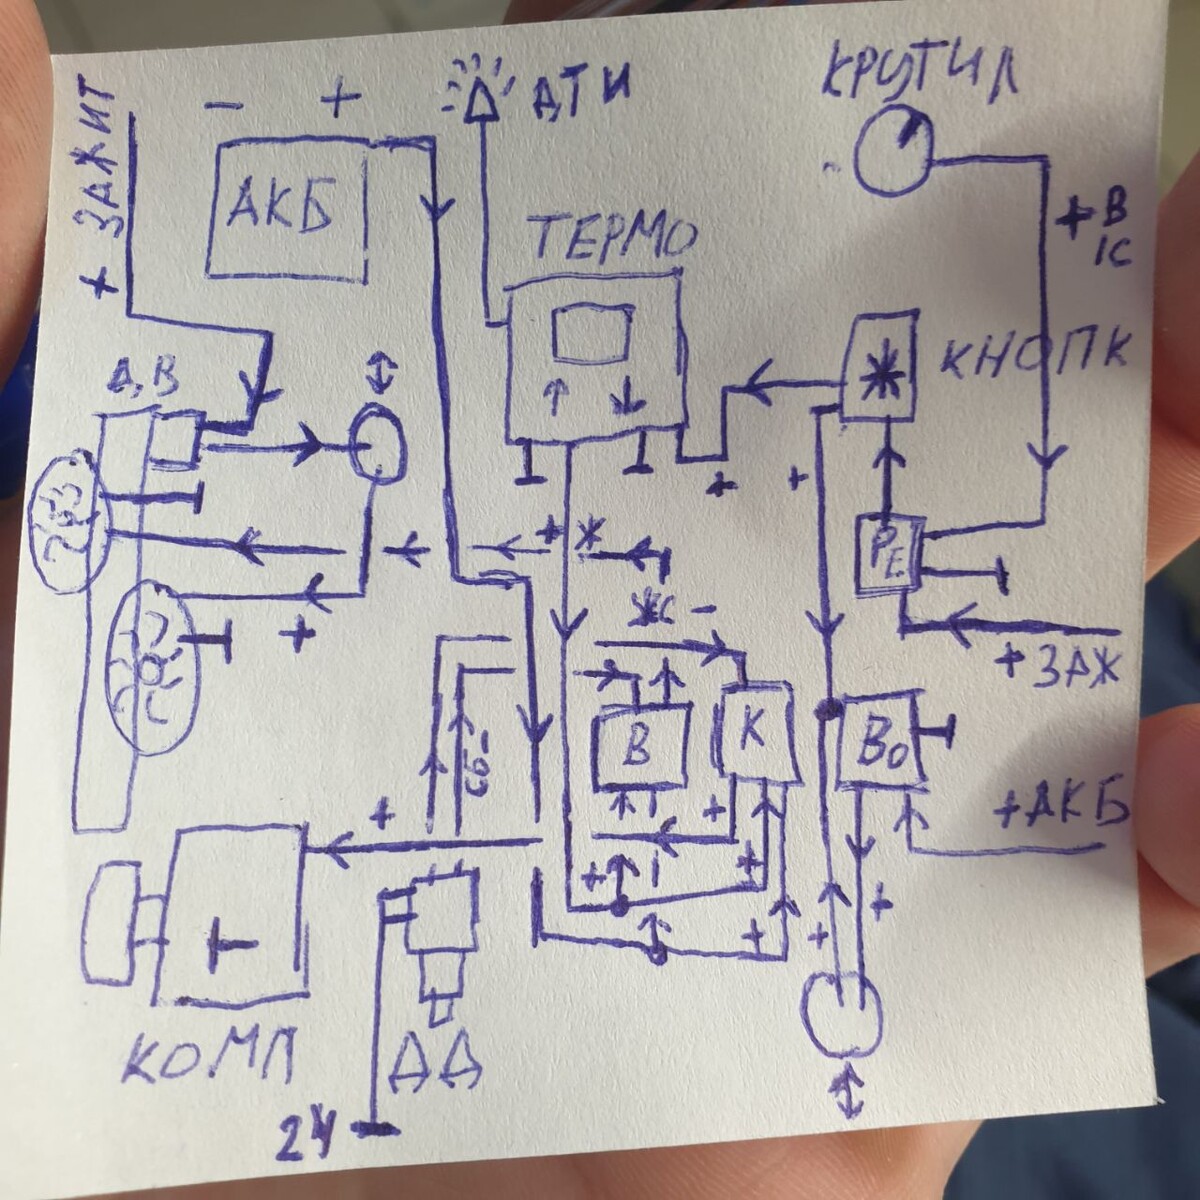 + ЗАЖИТ
- +
АКБ
ДТИ
КРУТИЛ
+ В
1С
ТЕРМО
КНОПК
Д,В
+
+
+ *
РЕ
Ж -
+ ЗАЖ
+
В
К
ВО
+ АКБ
+
+
+
+
+
+
+
КОМП
ДД
24